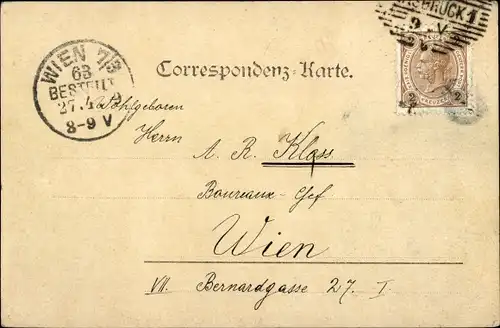 SBRUCK 1
9 - V
WIEN 7/3
63
Correspondenz-Karte.
BESTELLT
27. 4
8-9 V
2 2
Wohlgeboren
Herrn
A. R. Klass
Boureaux-Chef
Wien
VII. Bernardgasse 27. I